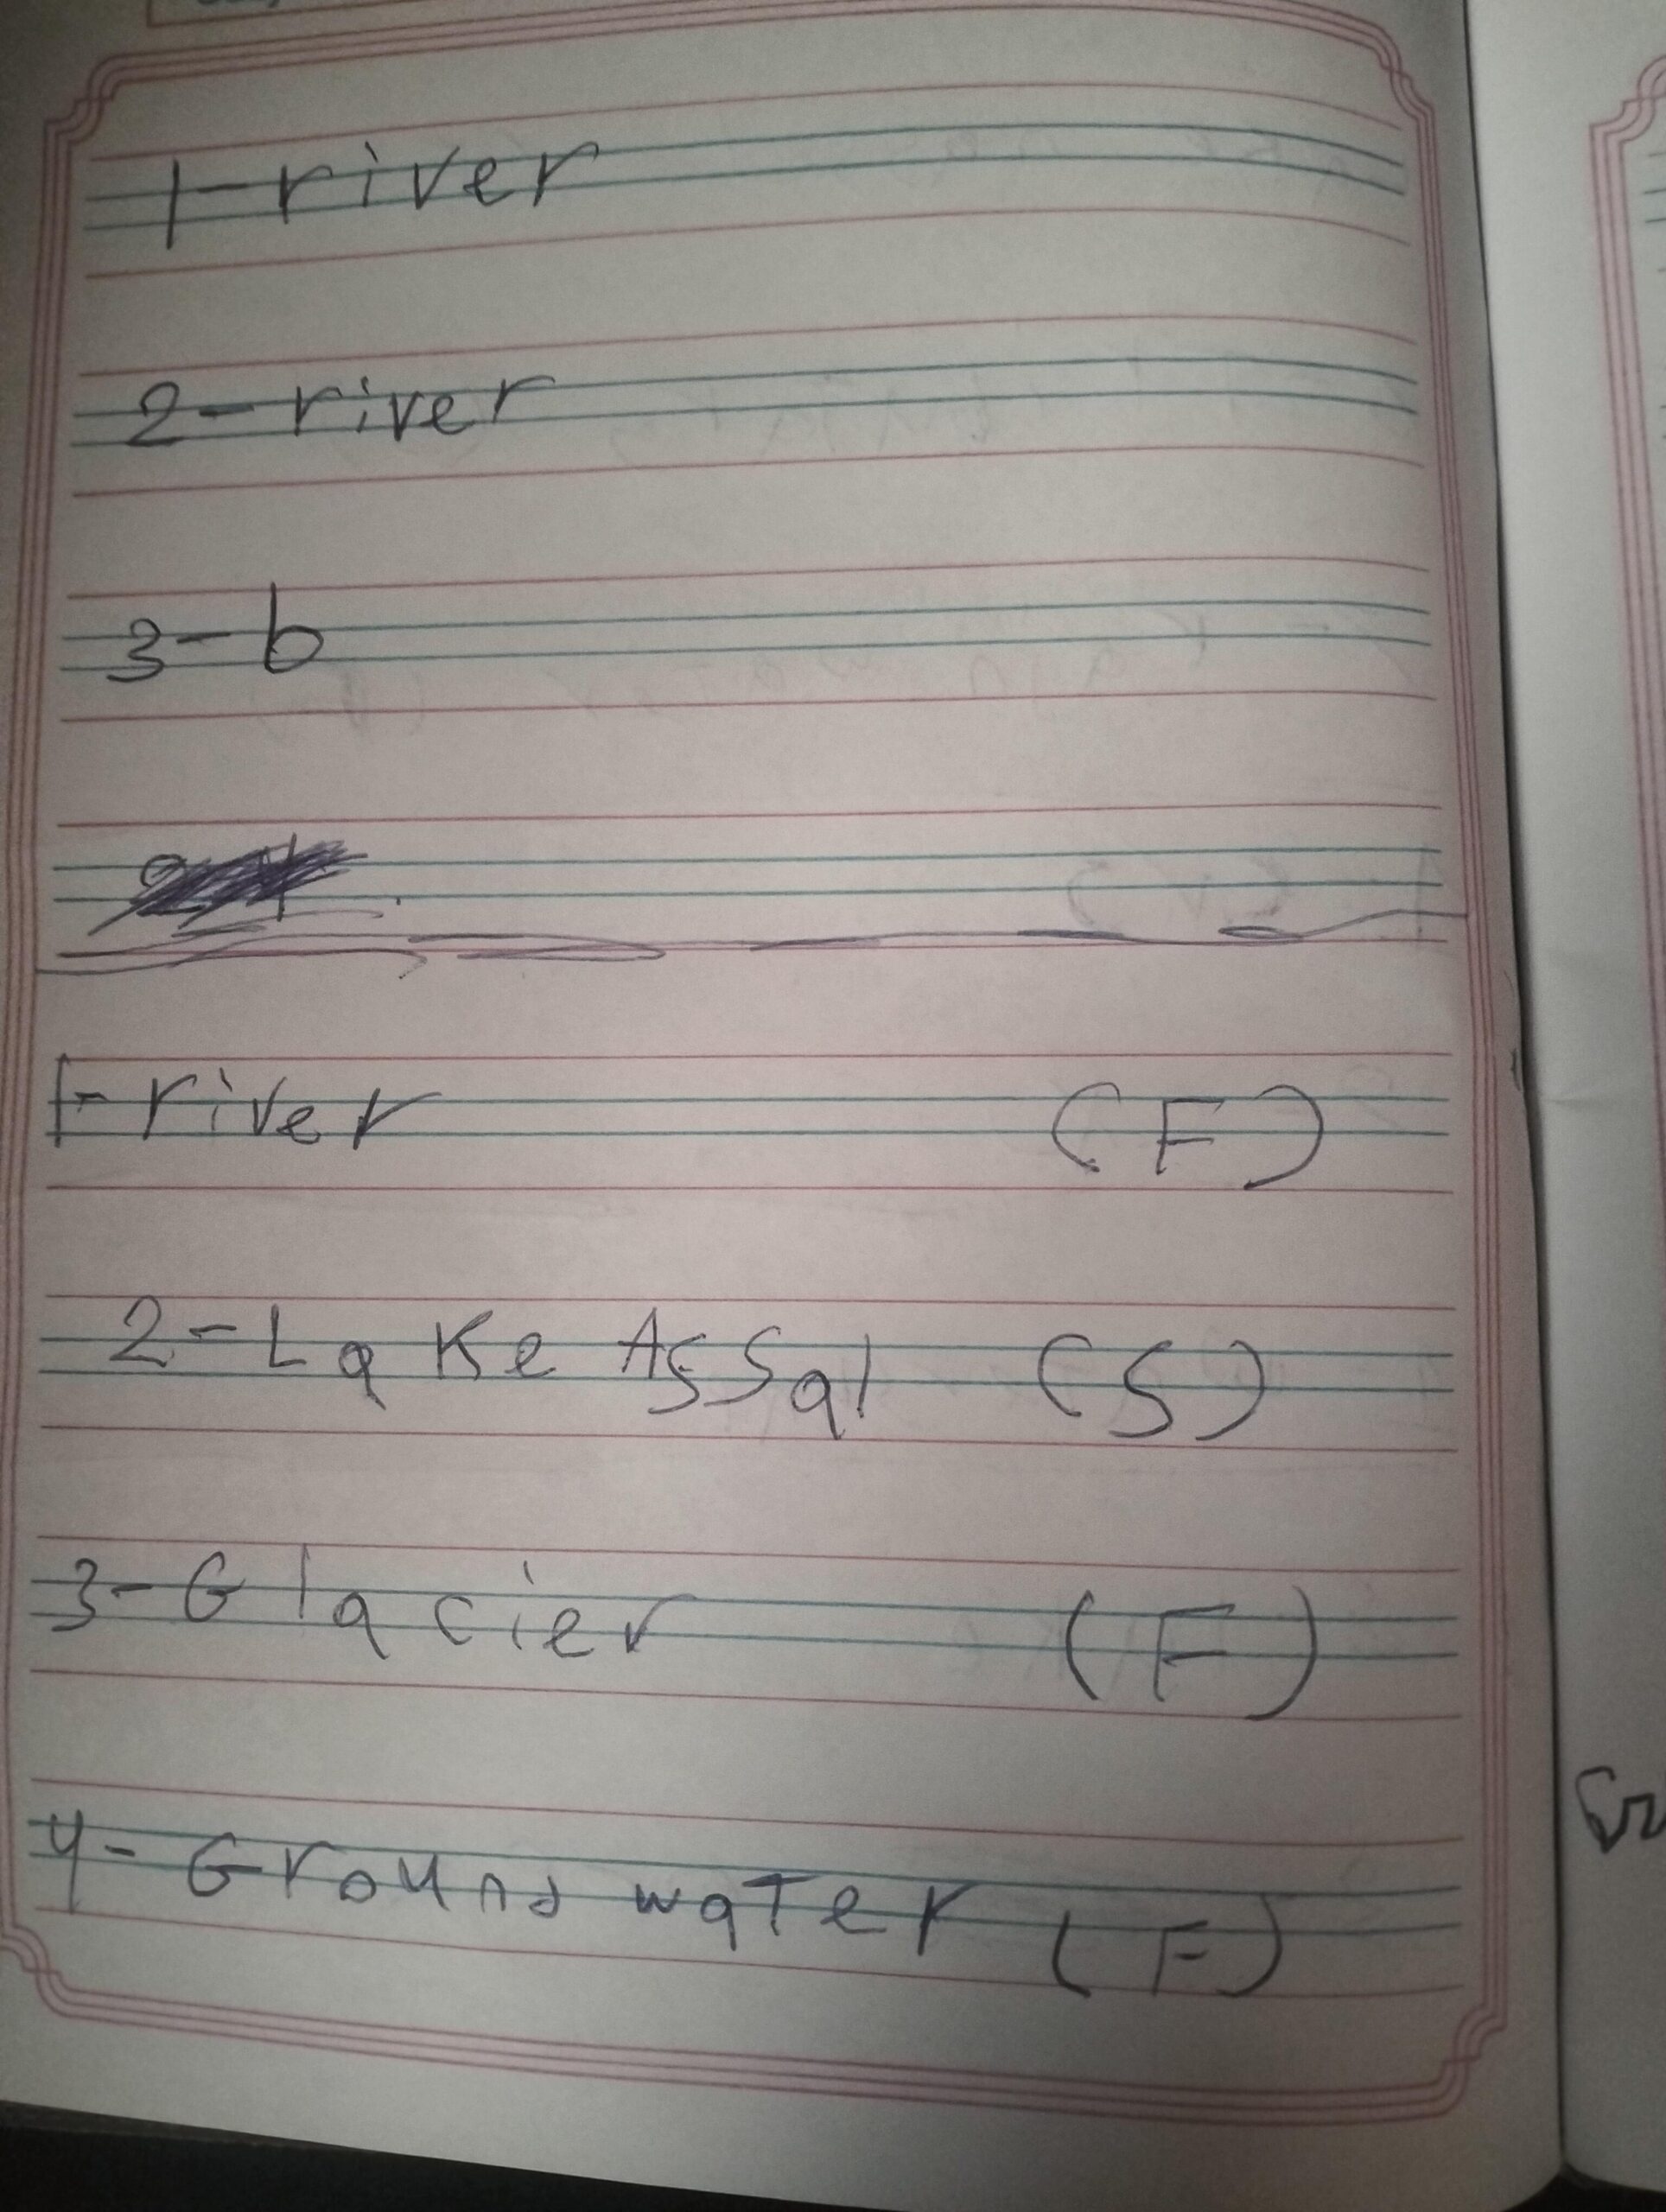 1-river
2-river
3-b
1-river (F)
2-Lake Assal (S)
3-Glacier (F)
4-Ground water (F)